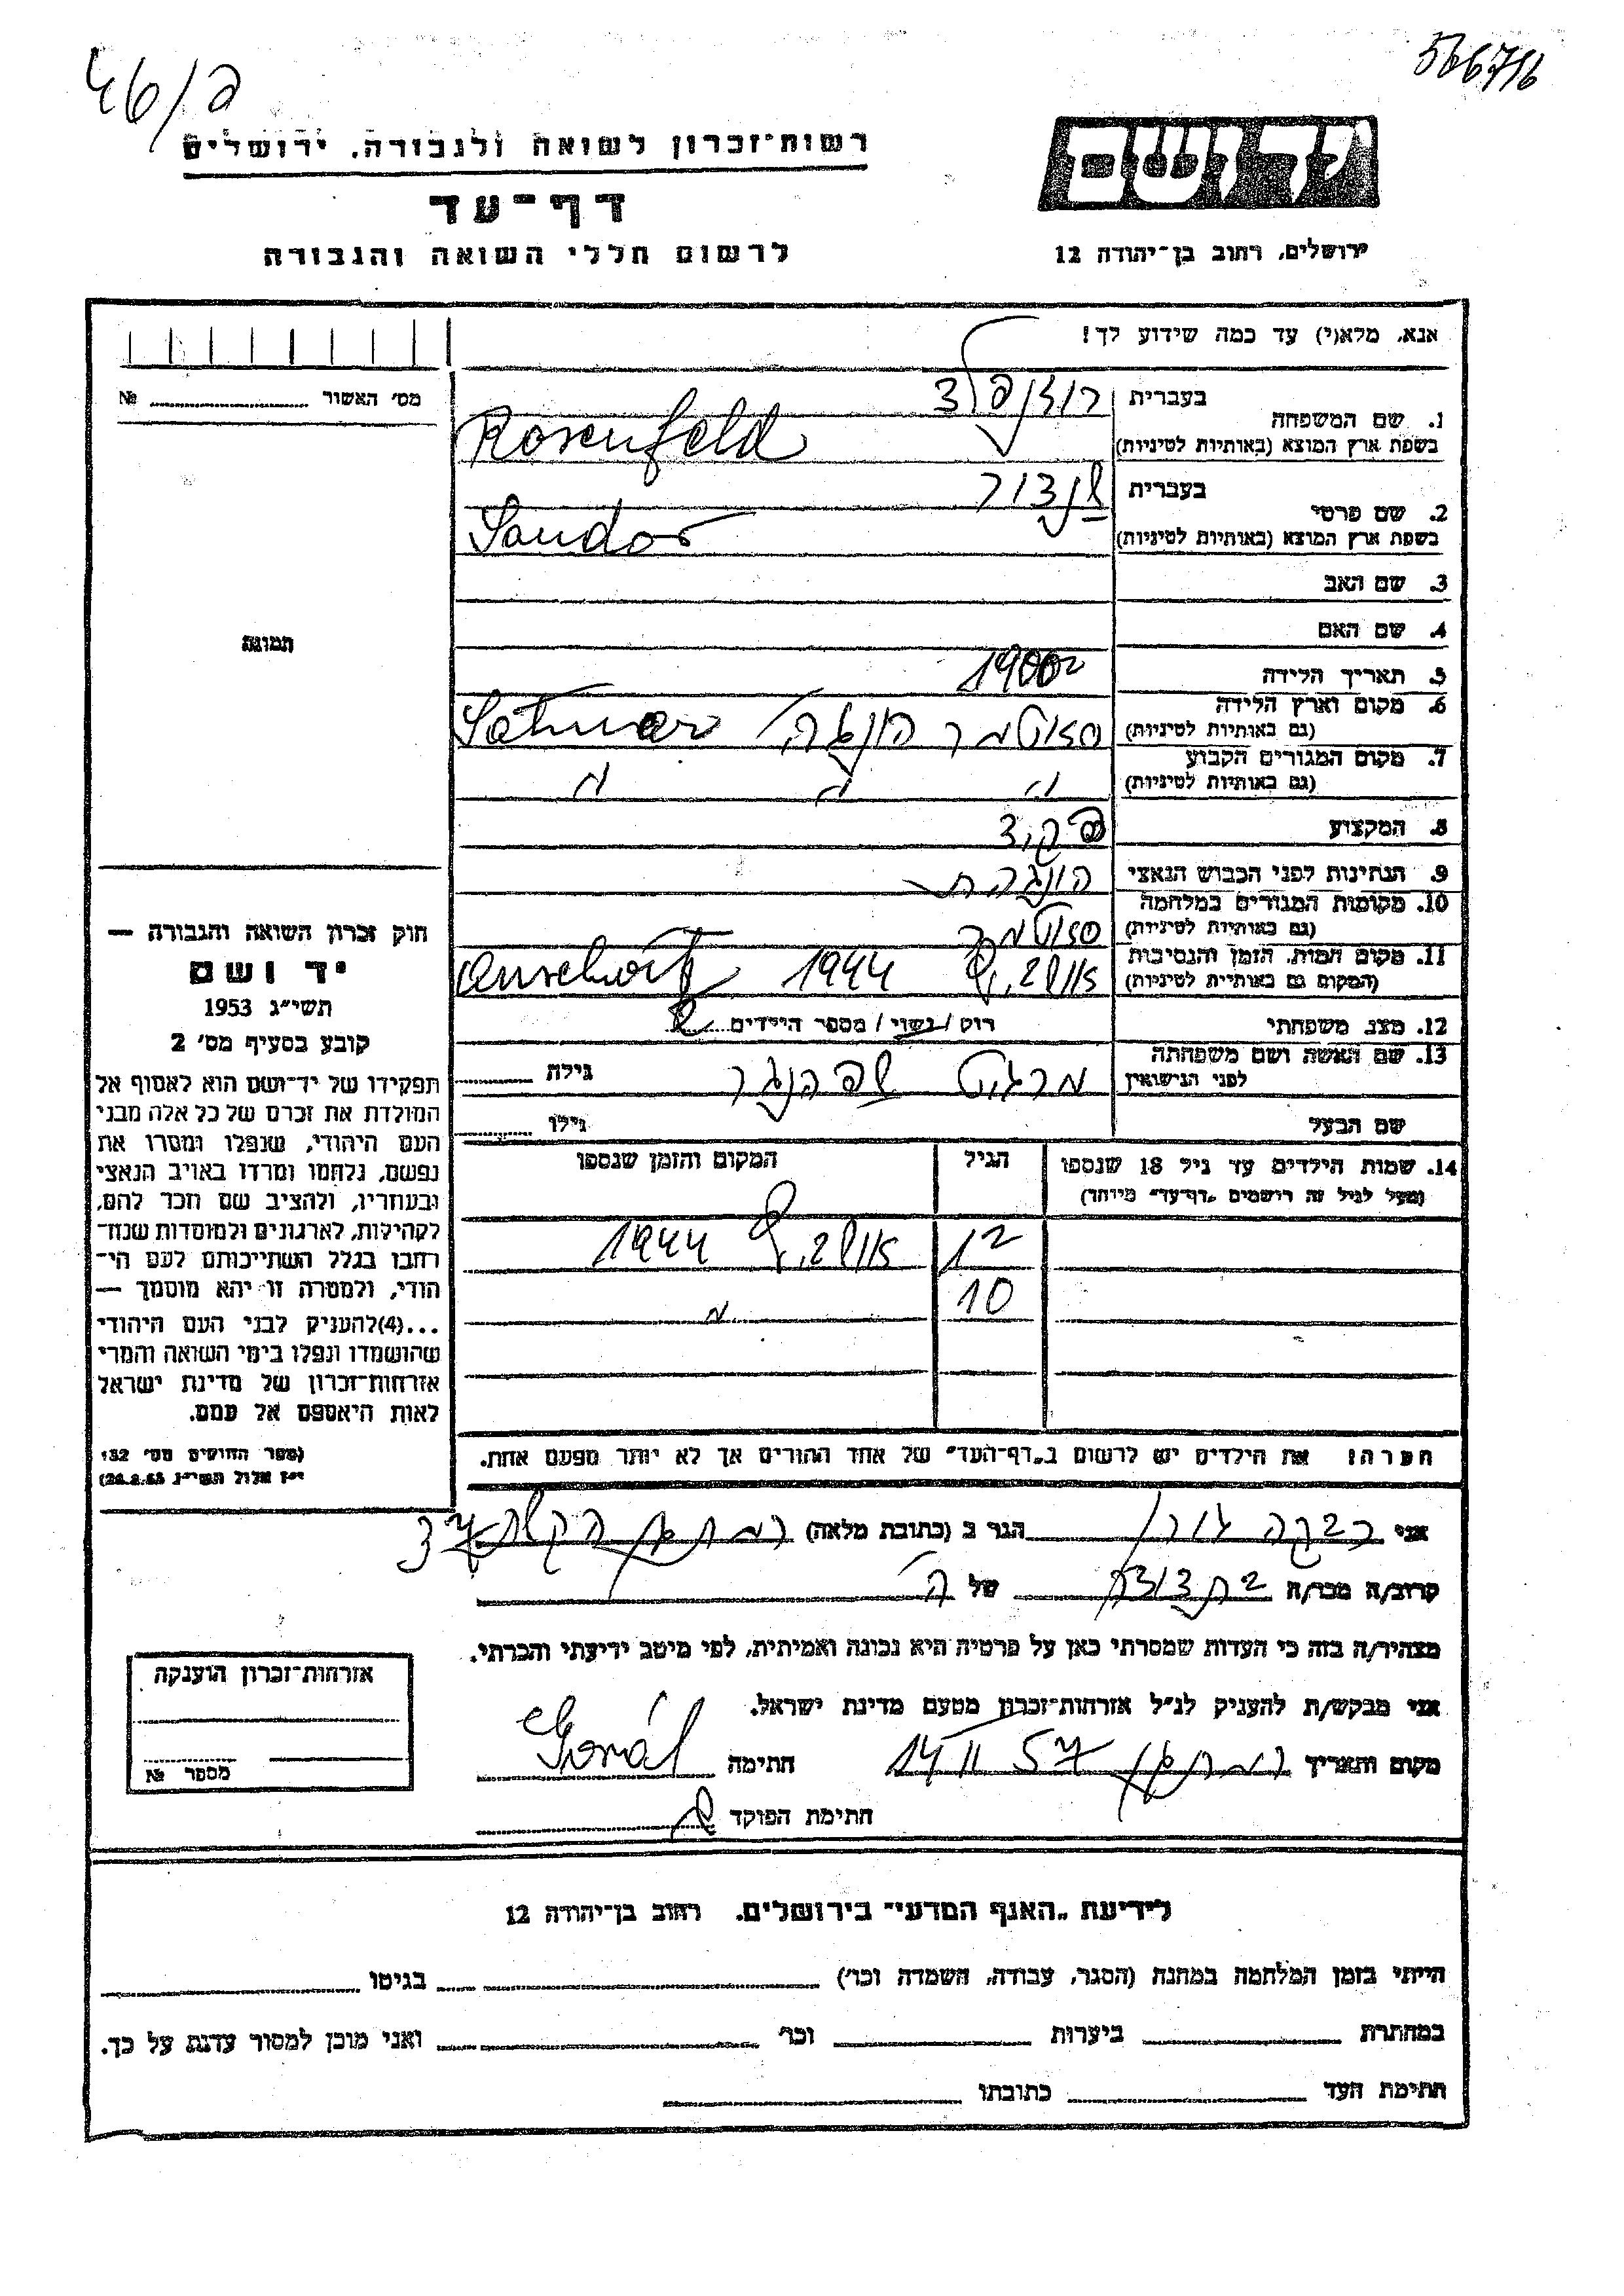 46/פ
566716
רשות־זכרון לשואה ולגבורה, ירושלים
יד ושם
דף־עד
לרשום חללי השואה והגבורה
ירושלים, רחוב בן־יהודה 12
אנא, מלא(י) עד כמה שידוע לך!
מס׳ האשור №
1. שם המשפחה בעברית רוזנפלד
בשפת ארץ המוצא (באותיות לטיניות) Rosenfeld
2. שם פרטי בעברית שנדור
בשפת ארץ המוצא (באותיות לטיניות) Sandor
3. שם האב
4. שם האם
תמונה
5. תאריך הלידה 1900
6. מקום וארץ הלידה סאוטמר הונגריה Satmar
(גם באותיות לטיניות)
7. מקום המגורים הקבוע
(גם באותיות לטיניות)
8. המקצוע פקיד
9. הנתינות לפני הכבוש הנאצי הונגרית
10. מקומות המגורים במלחמה סאוטמר
(גם באותיות לטיניות)
11. מקום המות, הזמן והנסיבות 1944
(המקום גם באותיות לטיניות)
12. מצב משפחתי רוק / נשוי / מספר הילדים 2
13. שם האשה ושם משפחתה מרגיט גילה
לפני הנישואין
שם הבעל גילו
14. שמות הילדים עד גיל 18 שנספו הגיל המקום והזמן שנספו
(מעל לגיל זה רושמים „דף־עד״ מיוחד)
12 1944
10
הערה: את הילדים יש לרשום ב„דף־העד״ של אחד ההורים אך לא יותר מפעם אחת.
חוק זכרון השואה והגבורה —
יד ושם
תשי״ג 1953
קובע בסעיף מס׳ 2
תפקידו של יד־ושם הוא לאסוף אל
המולדת את זכרם של כל אלה מבני
העם היהודי, שנפלו ומסרו את
נפשם, נלחמו ומרדו באויב הנאצי
ובעוזריו, ולהציב שם וזכר להם,
לקהילות, לארגונים ולמוסדות שנח־
רבו בגלל השתייכותם לעם הי־
הודי, ולמטרה זו יהא מוסמך —
...(4)להעניק לבני העם היהודי
שהושמדו ונפלו בימי השואה והמרי
אזרחות־זכרון של מדינת ישראל
לאות היאספם אל עמם.
(ספר החוקים מס׳ 132
י״ז אלול תשי״ג 28.8.53)
אני רבקה גורן הגר ב (כתובת מלאה) רמת גן
קרוב/ה מכר/ה בת דודה של ה
מצהיר/ה בזה כי העדות שמסרתי כאן על פרטיה היא נכונה ואמיתית, לפי מיטב ידיעתי והכרתי.
אני מבקש/ת להעניק לנ״ל אזרחות־זכרון מטעם מדינת ישראל.
מקום ותאריך רמת גן 14 II 57 חתימה
חתימת הפוקד
אזרחות־זכרון הוענקה
מספר №
לידיעת „האגף המדעי״ בירושלים. רחוב בן־יהודה 12
הייתי בזמן המלחמה במחנה (הסגר, עבודה, השמדה וכו׳) בגיטו
במחתרת ביערות וכו׳ ואני מוכן למסור עדות על כך.
חתימת העד כתובתו